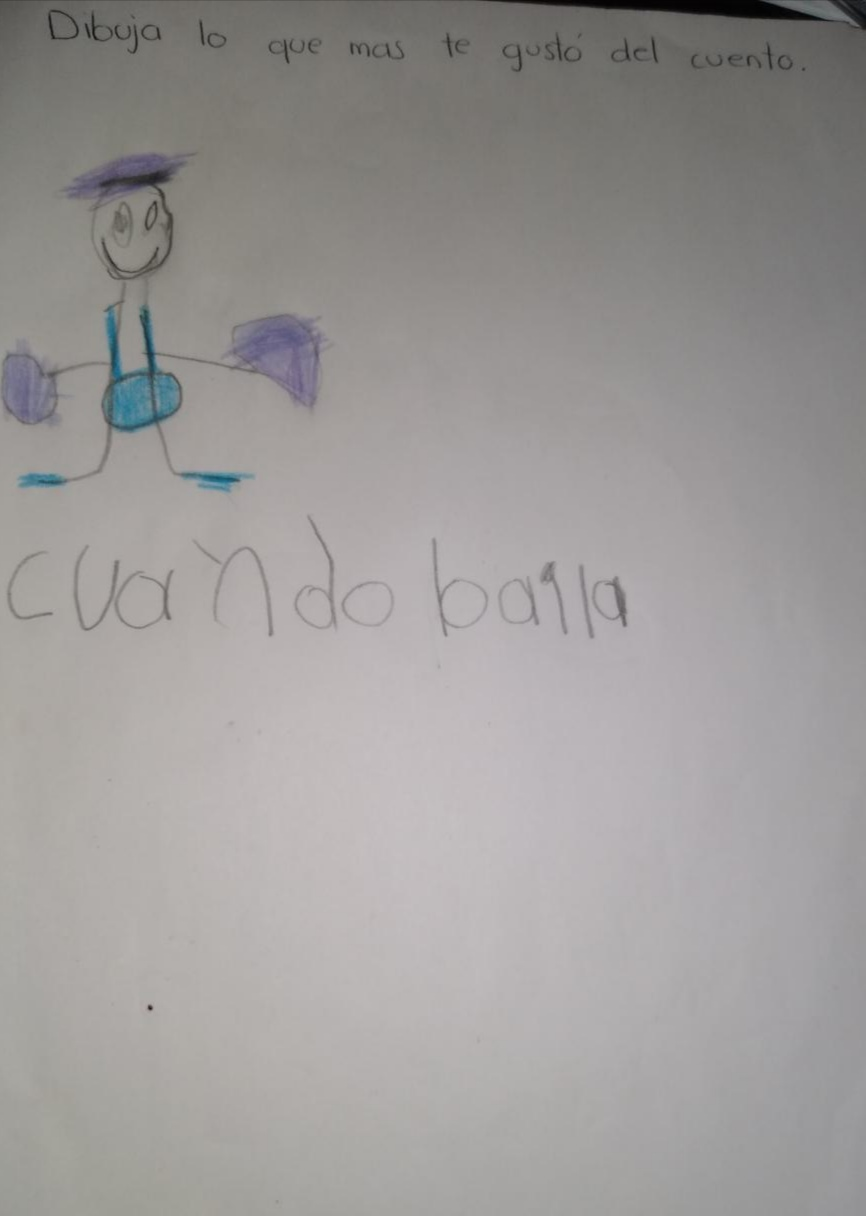 Dibuja lo que mas te gustó del cuento.
cuando baila